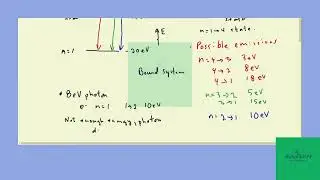 n=1→4 state.
E
n=1
-20eV
Possible emissions
n=4→3 3eV
4→2 8eV
4→1 18eV
Bound system
• 8eV photon
e- n=1 1→2 10eV
n=3→2 5eV
3→1 15eV
Not enough energy, photon
n=2→1 10eV